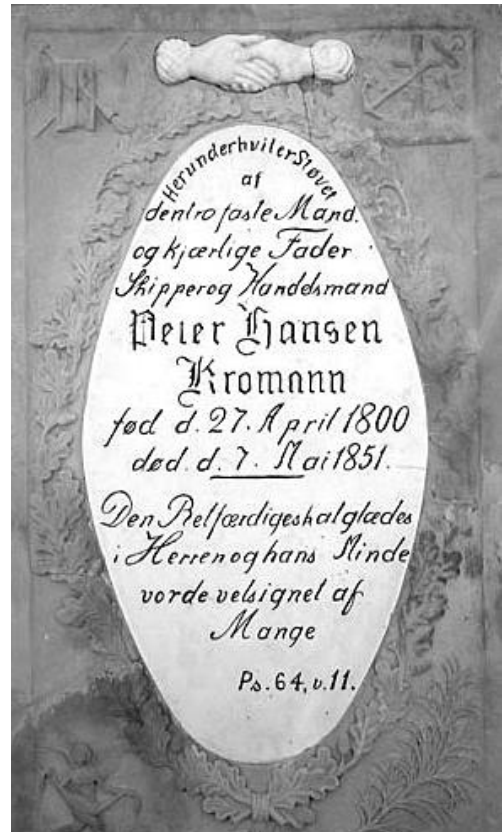 Herunder hviler Støvet
af
den tro faste Mand.
og kjærlige Fader
Skipper og Handelsmand
Peter Hansen
Kromann
fød d. 27. April 1800
død. d. 7. Mai 1851.
Den Retfærdige skal glædes
i Herren og hans Minde
vorde velsignet af
Mange
Ps. 64, v. 11.